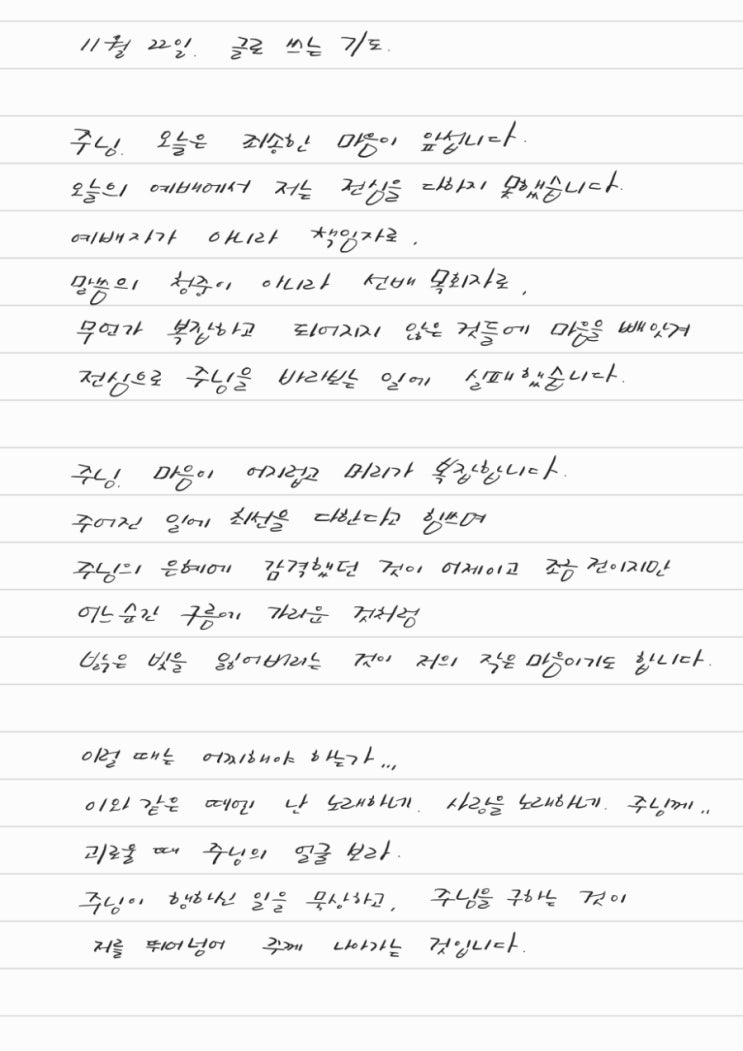 11월 22일. 글로 쓰는 기도.
주님. 오늘은 죄송한 마음이 앞섭니다.
오늘의 예배에서 저는 전심을 다하지 못했습니다.
예배자가 아니라 책임자로,
말씀의 청중이 아니라 선배 목회자로,
무언가 복잡하고 되어지지 않은 것들에 마음을 빼앗겨
전심으로 주님을 바라보는 일에 실패했습니다.
주님. 마음이 어지럽고 머리가 복잡합니다.
주어진 일에 최선을 다한다고 힘쓰며
주님의 은혜에 감격했던 것이 어제이고 조금 전이지만
어느순간 구름에 가리운 것처럼
밝은 빛을 잃어버리는 것이 저의 작은 마음이기도 합니다.
이럴 때는 어찌해야 하는가...
이와 같은 때엔 난 노래하네. 사랑을 노래하네. 주님께..
괴로울 때 주님의 얼굴 보라.
주님이 행하신 일을 묵상하고, 주님을 구하는 것이
저를 뛰어넘어 주께 나아가는 것입니다.